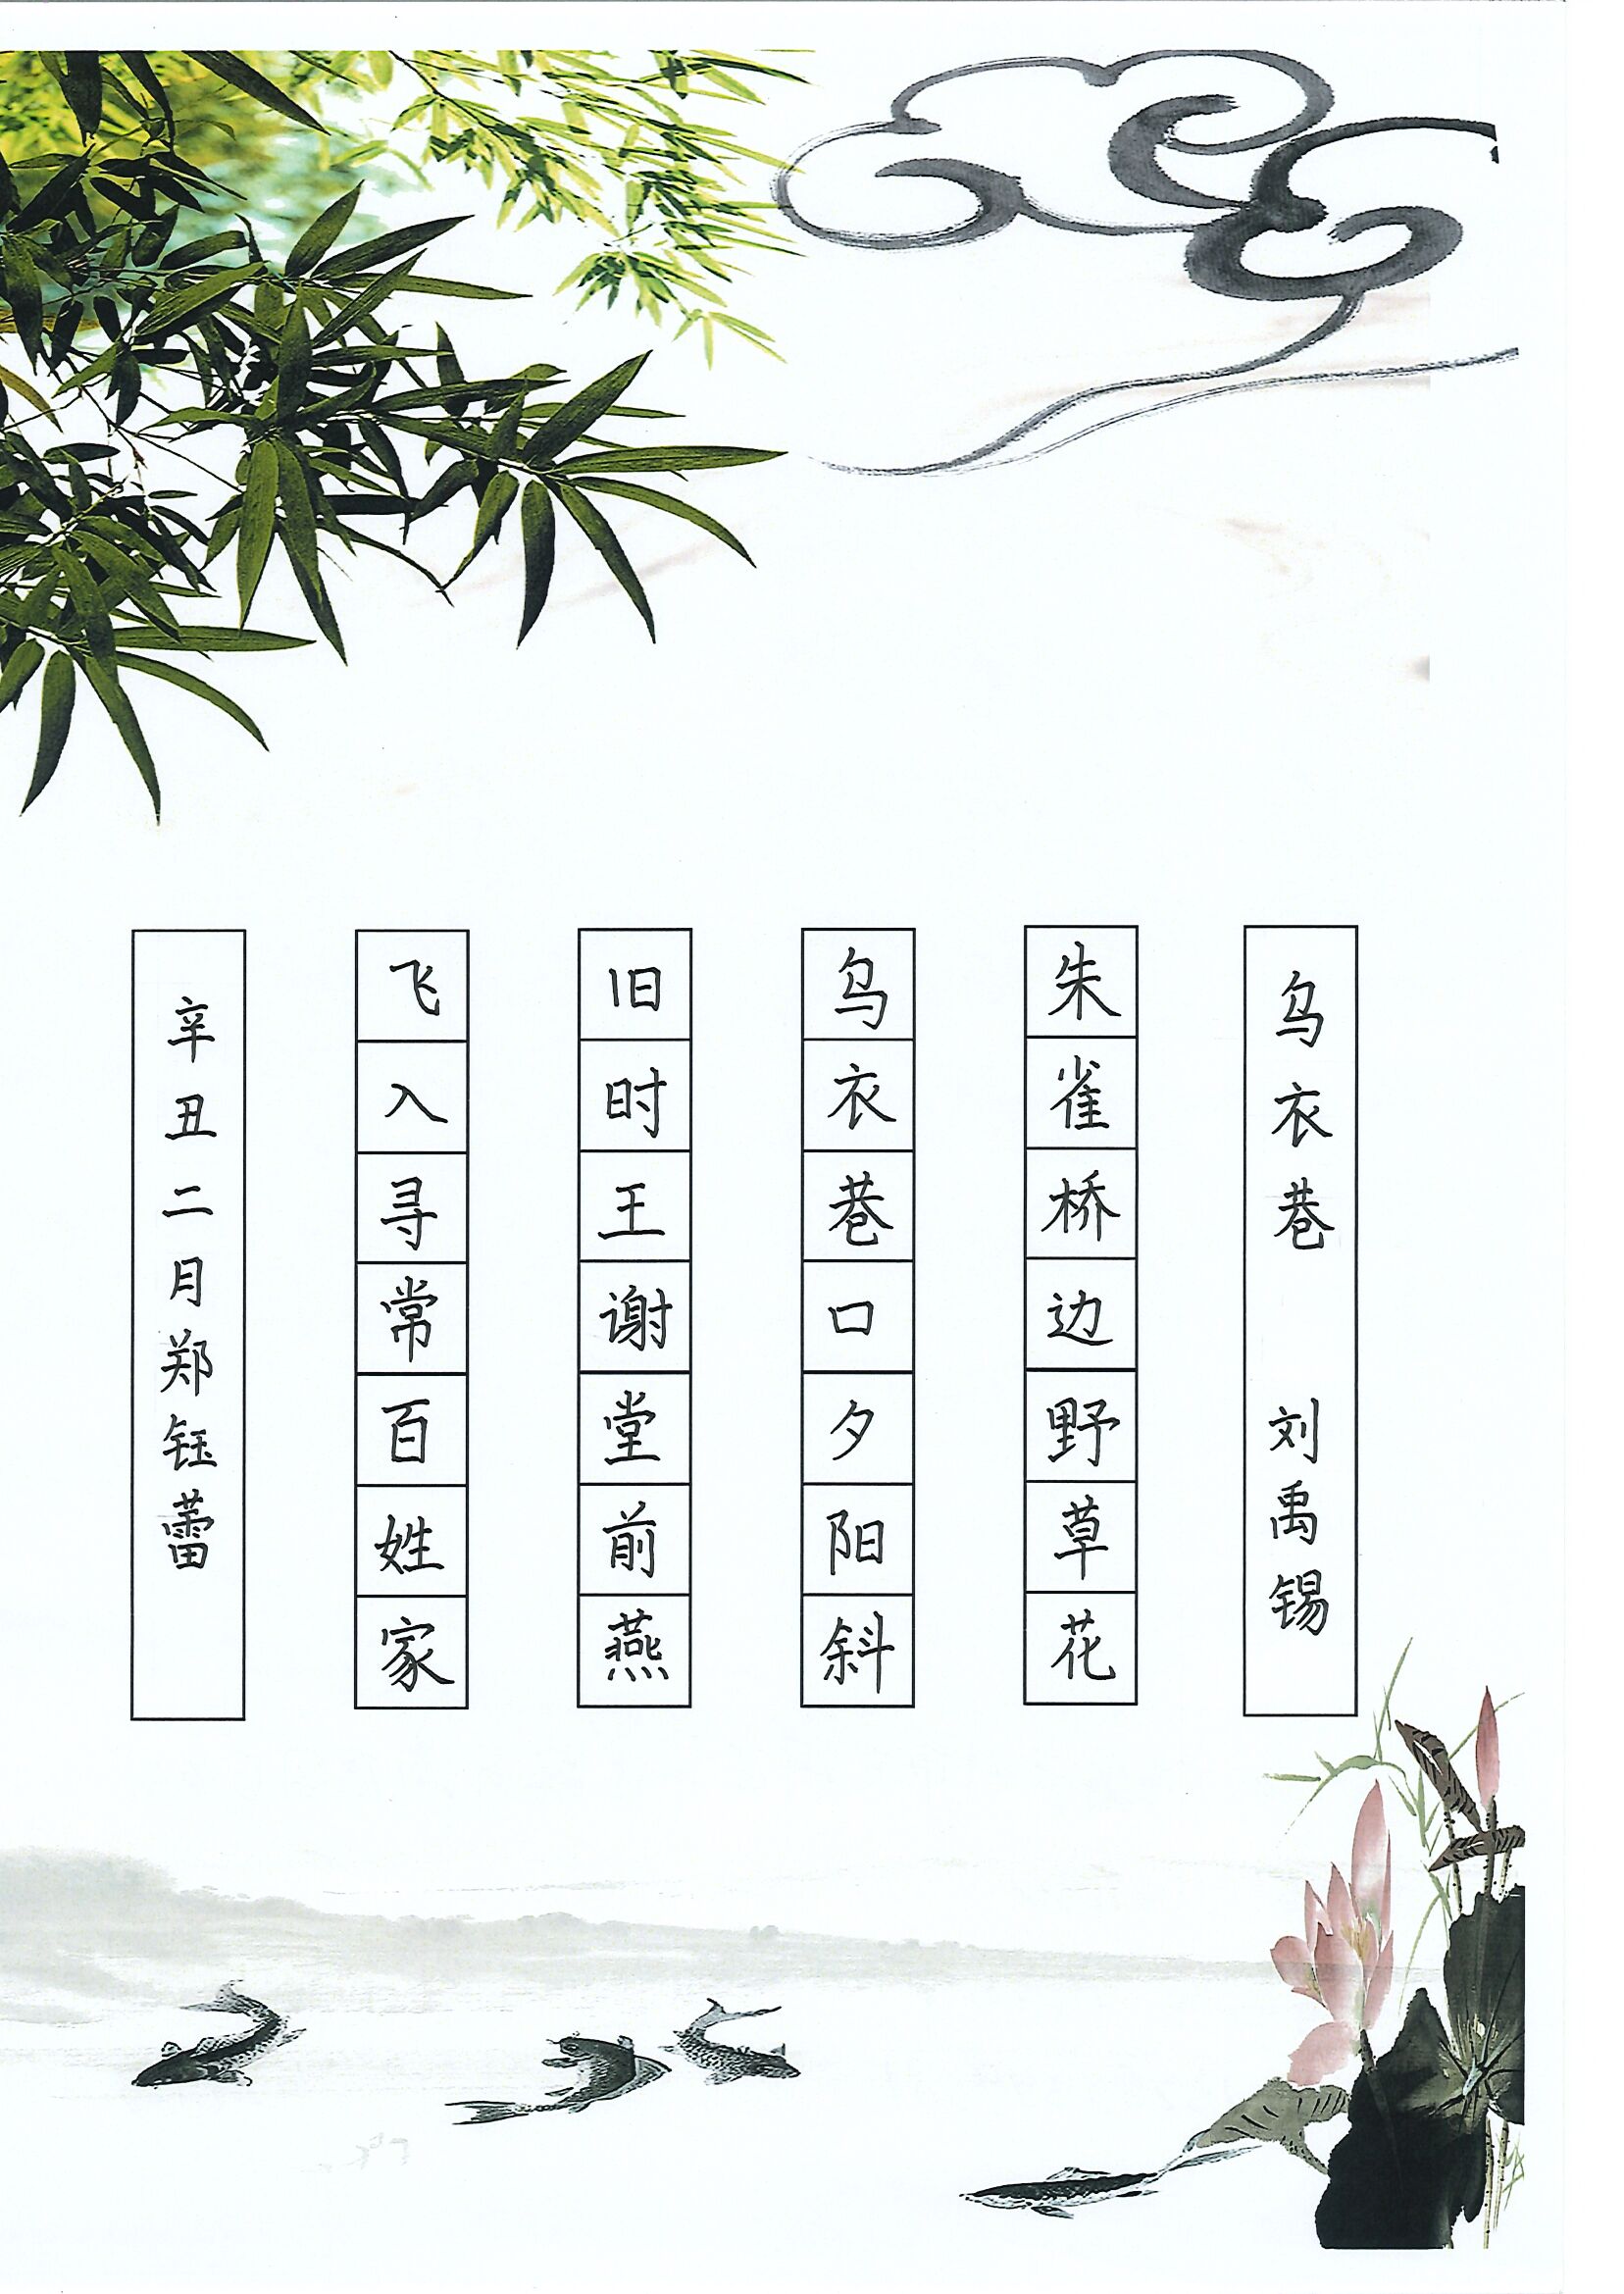 乌衣巷 刘禹锡
朱雀桥边野草花
乌衣巷口夕阳斜
旧时王谢堂前燕
飞入寻常百姓家
辛丑二月郑钰蕾